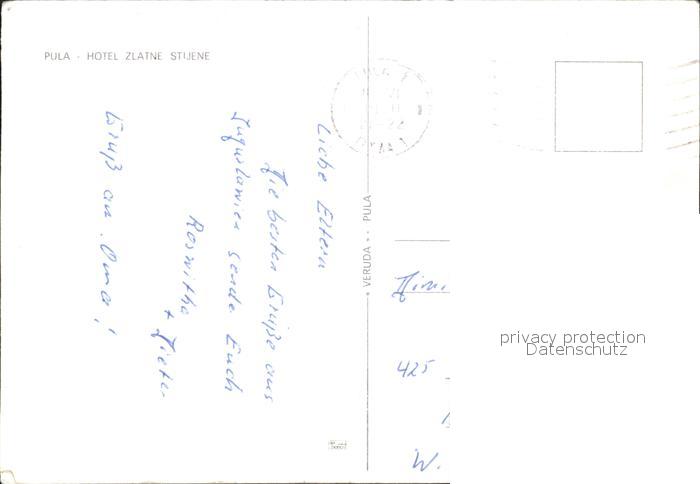 PULA - HOTEL ZLATNE STIJENE
Liebe Eltern
Die besten Grüße aus
Jugoslawien sende Euch
Roswitha
+ Dieter
Gruß an Oma!
VERUDA - PULA
PULA
425
W.
privacy protection
Datenschutz